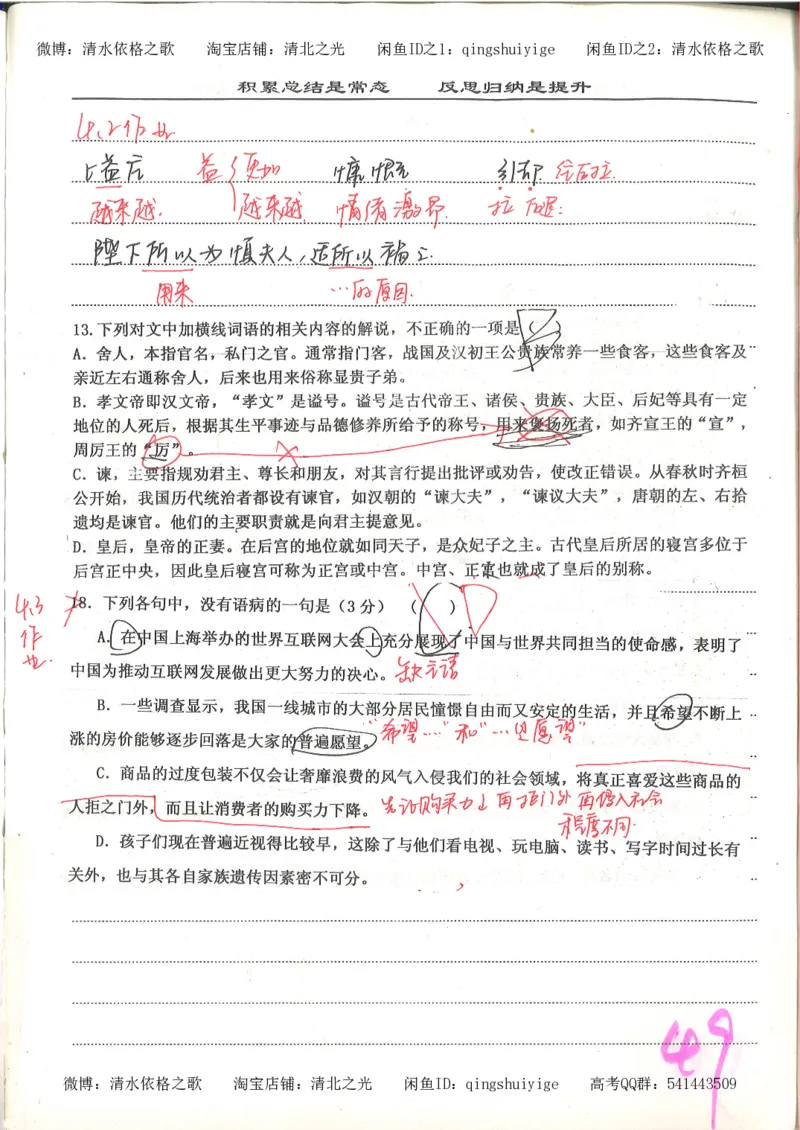 微博：清水依格之歌 淘宝店铺：清北之光 闲鱼ID之1：qingshuiyige 闲鱼ID之2：清水依格之歌
积累总结是常态 反思归纳是提升
4.2作业
上益庄 益 更加 慷慨 引却 今后拉
越来越 越来越 情绪激昂 拉 后退
陛下所以为慎夫人，适所以祸之
用来 …的原因
13.下列对文中加横线词语的相关内容的解说，不正确的一项是（ ）
A．舍人，本指官名，私门之官。通常指门客，战国及汉初王公贵族常养一些食客，这些食客及
亲近左右通称舍人，后来也用来俗称显贵子弟。
B．孝文帝即汉文帝，“孝文”是谥号。谥号是古代帝王、诸侯、贵族、大臣、后妃等具有一定
地位的人死后，根据其生平事迹与品德修养所给予的称号，用来褒扬死者，如齐宣王的“宣”，
周厉王的“厉”。
C．谏，主要指规劝君主、尊长和朋友，对其言行提出批评或劝告，使改正错误。从春秋时齐桓
公开始，我国历代统治者都设有谏官，如汉朝的“谏大夫”，“谏议大夫”，唐朝的左、右拾
遗均是谏官。他们的主要职责就是向君主提意见。
D．皇后，皇帝的正妻。在后宫的地位就如同天子，是众妃子之主。古代皇后所居的寝宫多位于
后宫正中央，因此皇后寝宫可称为正宫或中宫。中宫、正宫也就成了皇后的别称。
4.3
作
业
18．下列各句中，没有语病的一句是（3分） （ ）
A．在中国上海举办的世界互联网大会上充分展现了中国与世界共同担当的使命感，表明了
中国为推动互联网发展做出更大努力的决心。缺主语
B．一些调查显示，我国一线城市的大部分居民憧憬自由而又安定的生活，并且希望不断上
涨的房价能够逐步回落是大家的普遍愿望。“希望……”和“…是愿望”
C．商品的过度包装不仅会让奢靡浪费的风气入侵我们的社会领域，将真正喜爱这些商品的
人拒之门外，而且让消费者的购买力下降。先让购买力↓再拒门外 再侵入社会
程度不同
D．孩子们现在普遍近视得比较早，这除了与他们看电视、玩电脑、读书、写字时间过长有
关外，也与其各自家族遗传因素密不可分。
49
微博：清水依格之歌 淘宝店铺：清北之光 闲鱼ID：qingshuiyige 高考QQ群：541443509